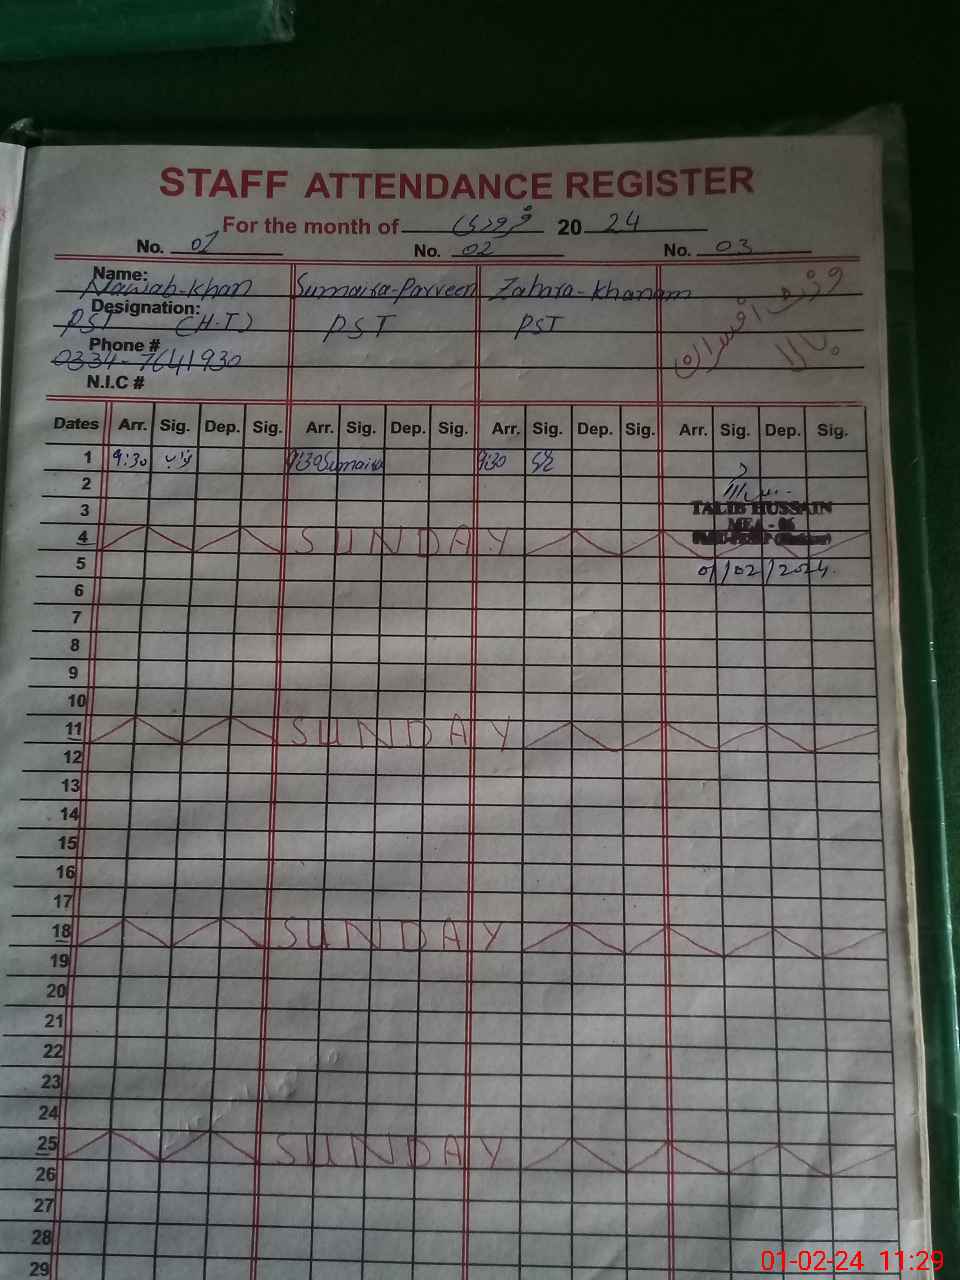 STAFF ATTENDANCE REGISTER
For the month of فروری 2024
No. 01 No. 02 No. 03
Name: Nawab-Khan Sumaira-Parveen Zahira-Khanam
Designation:
PST (H.T) PST PST
Phone #
0334-7641930
N.I.C #
وزٹ افسران
بالا
Dates Arr. Sig. Dep. Sig. Arr. Sig. Dep. Sig. Arr. Sig. Dep. Sig. Arr. Sig. Dep. Sig.
1 9:30 نواب 9:30 Sumaira 9:30
2
3
TALIB HUSSAIN
MEA - 06
4 SUNDAY
5
01/02/2024.
6
7
8
9
10
11 SUNDAY
12
13
14
15
16
17
18 SUNDAY
19
20
21
22
23
24
25 SUNDAY
26
27
28
29
01-02-24 11:29